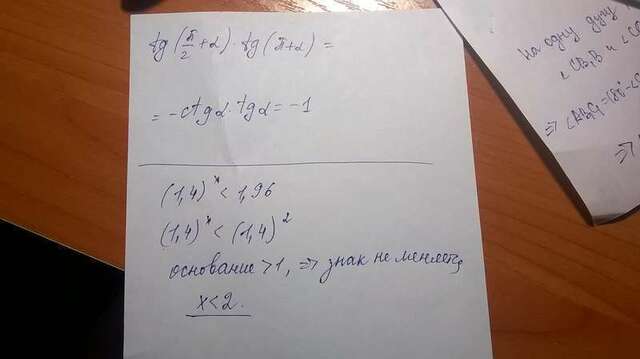 tg(π/2 + α) · tg(π + α) =
= -ctg α · tg α = -1
(1,4)ˣ < 1,96
(1,4)ˣ < (1,4)²
основание > 1, => знак не меняется
x < 2.
на одну дугу